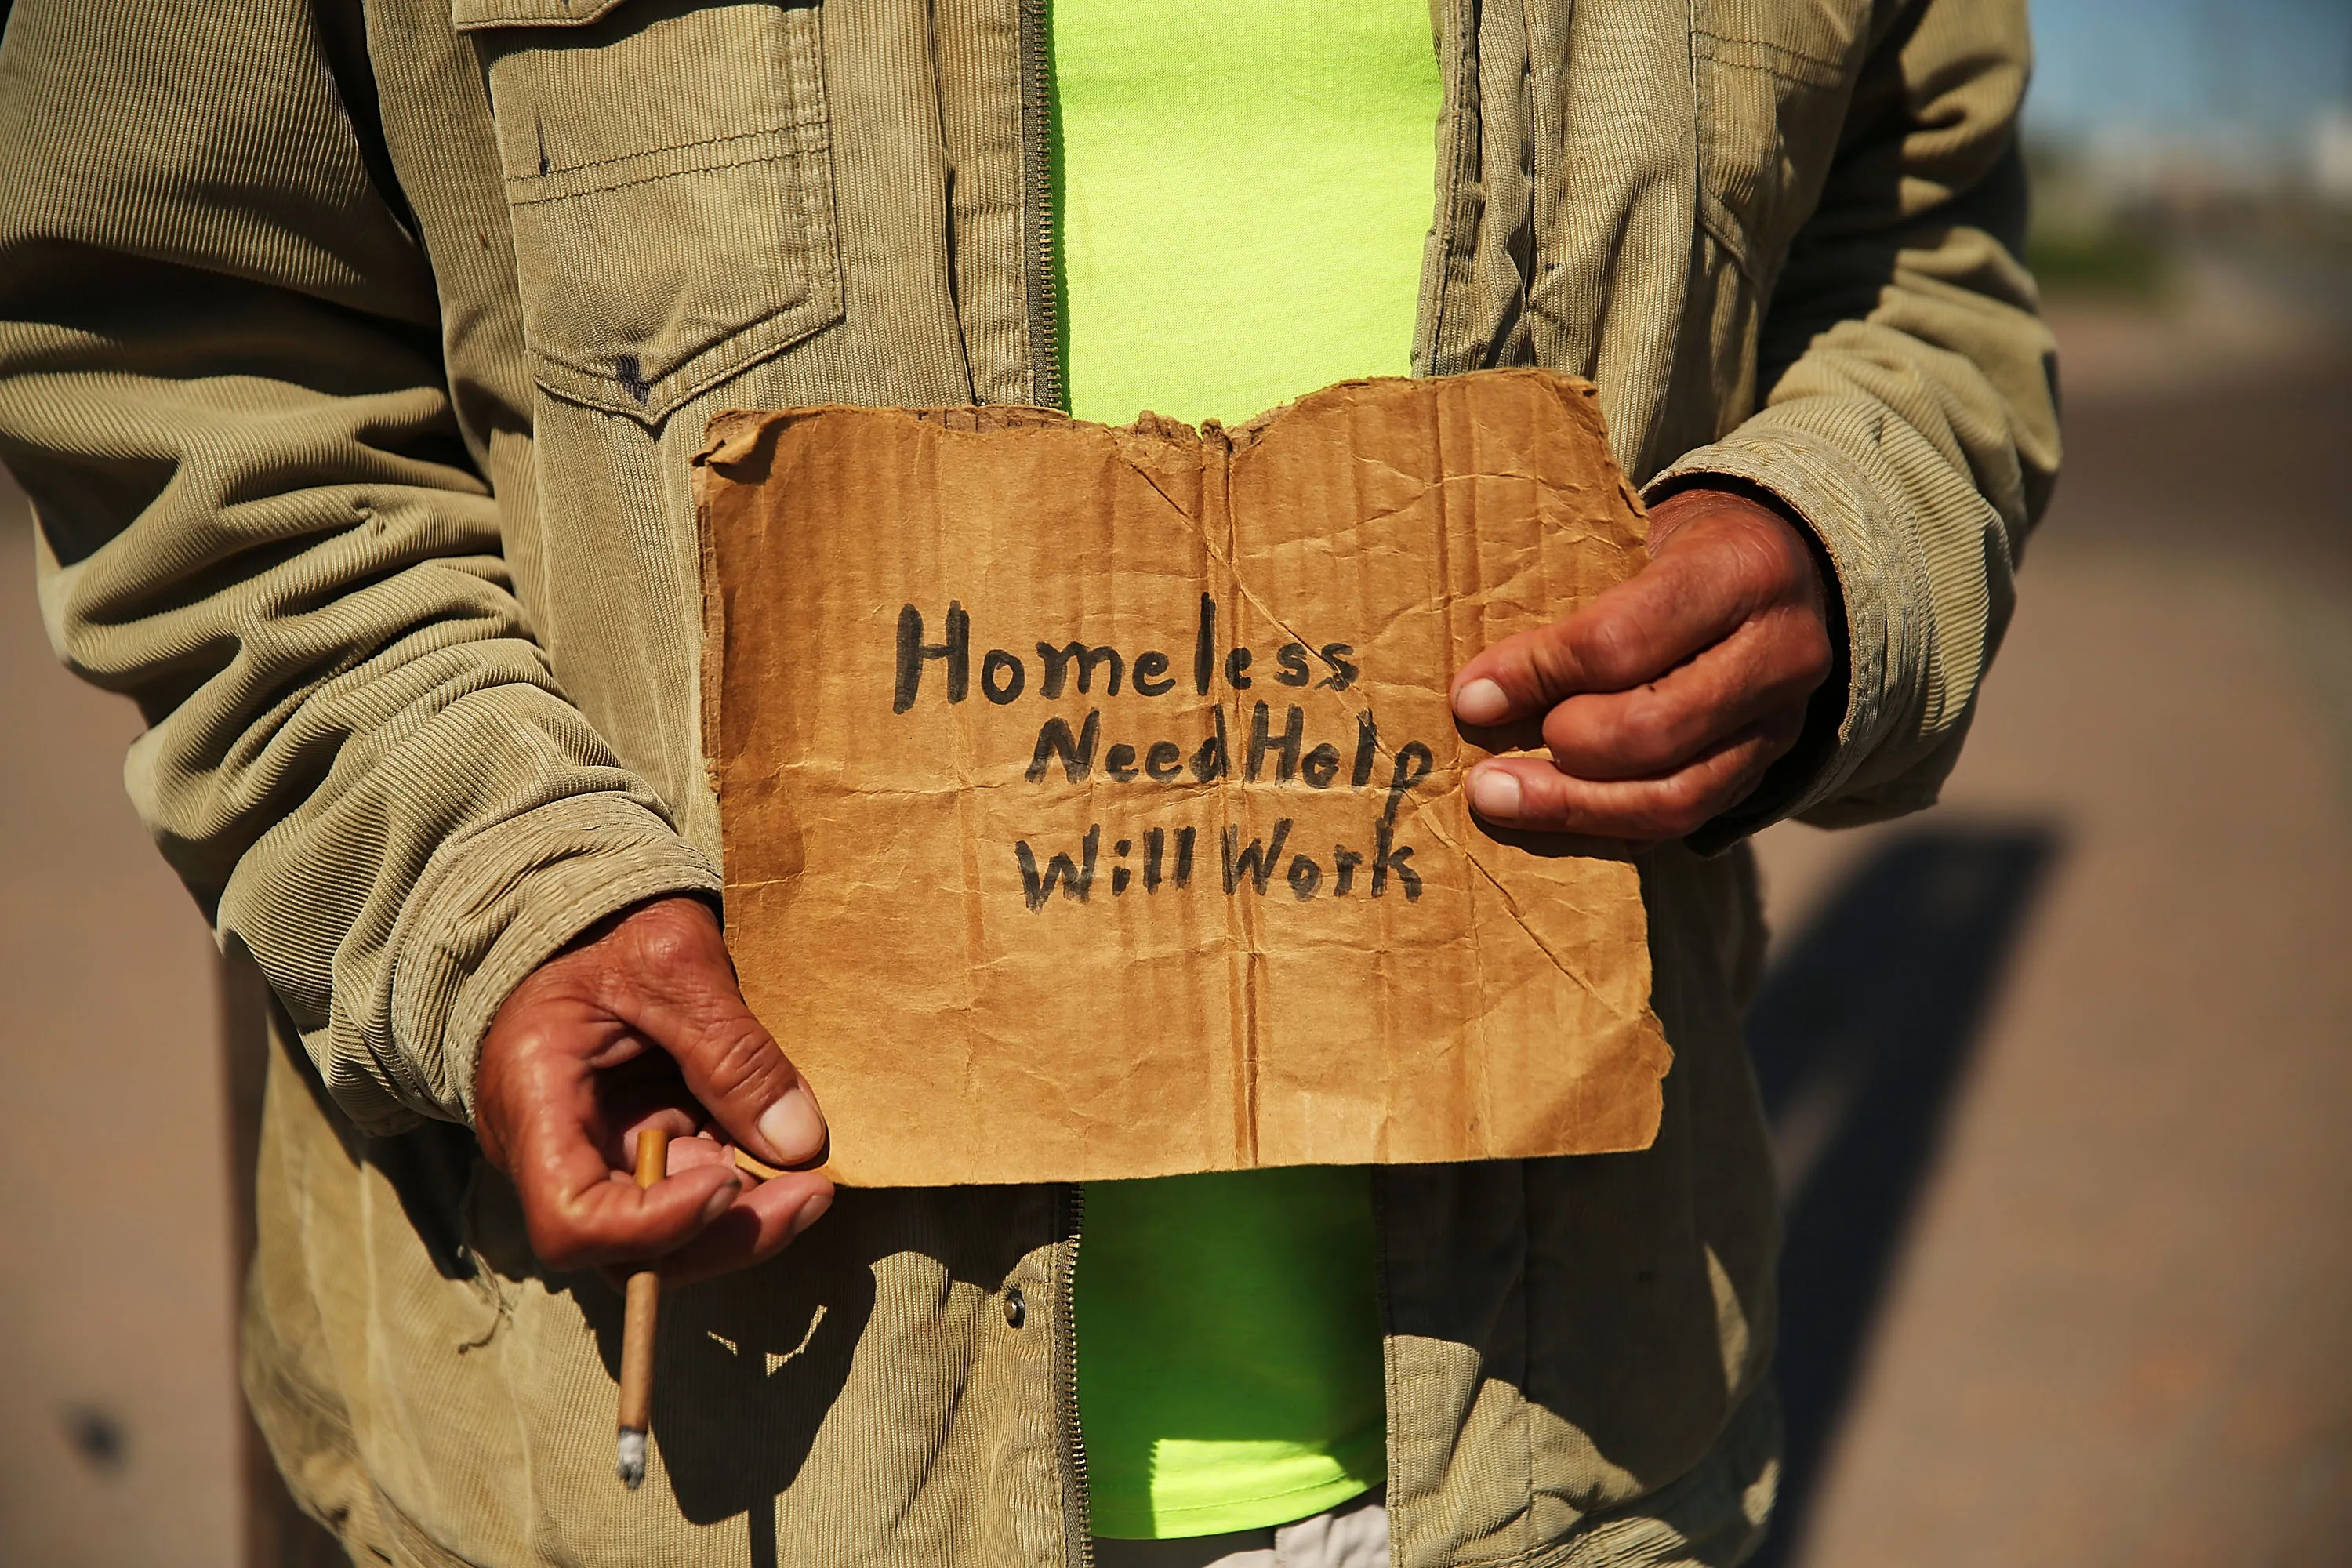 Homeless
Need Help
Will Work